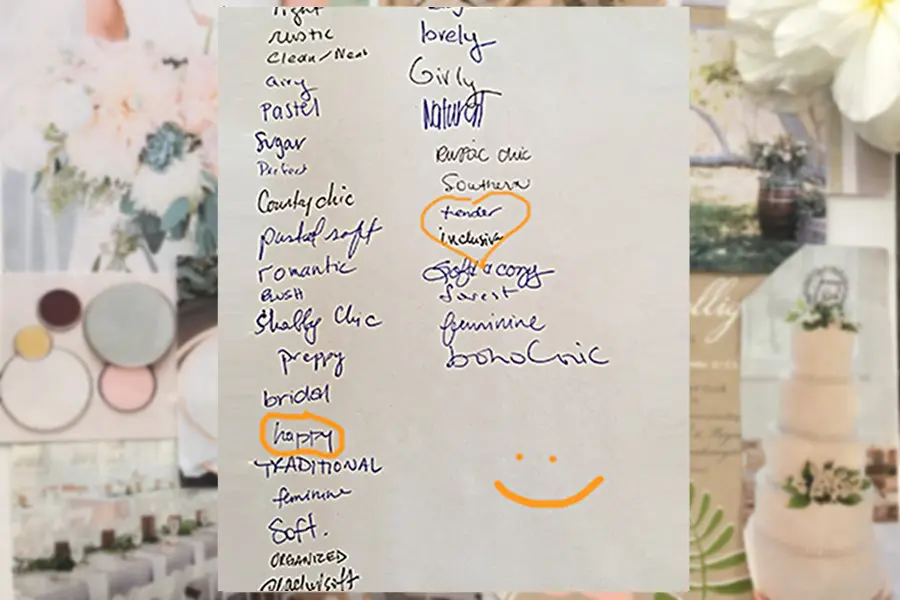 light
rustic
Clean/Neat
airy
Pastel
Sugar
Perfect
Country chic
pastel soft
romantic
Blush
Shabby Chic
preppy
bridal
happy
TRADITIONAL
feminine
Soft.
ORGANIZED
lovely
Girly
Natural
Rustic chic
Southern
tender
inclusive
Soft & cozy
Sweet
feminine
boho Chic